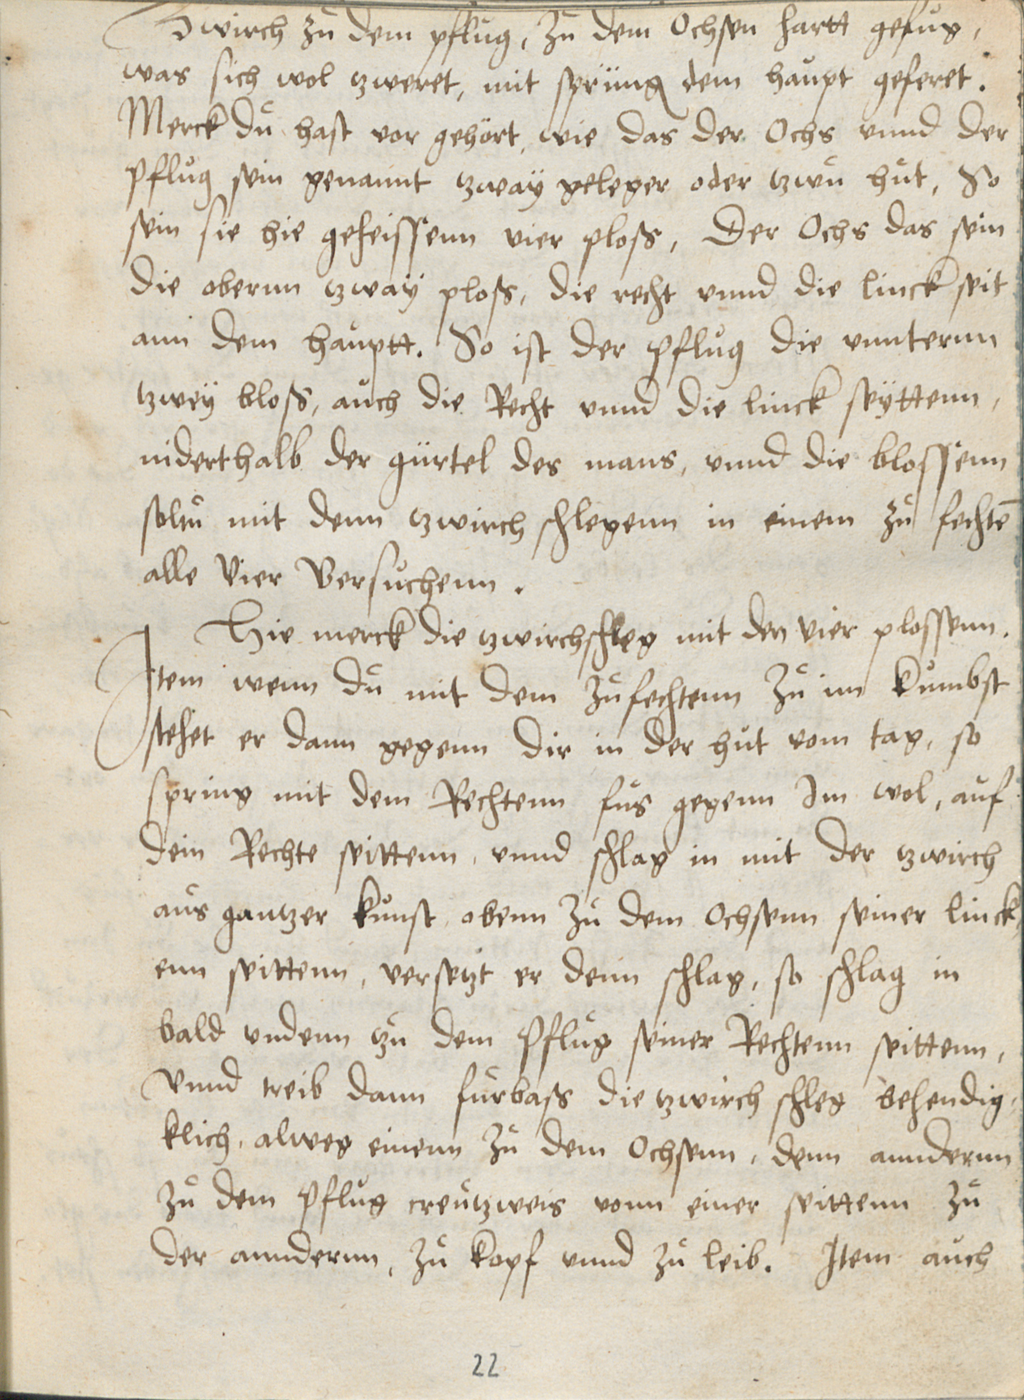 Zwirch zů dem pflůg, zů dem Ochsen hartt gefůg,
was sich wol tzweret, mit sprüng dem haůpt geferet.
Merck dů hast vor gehört, wie das der Ochs vnnd der
pflůg sein genannt tzwaÿ geleger oder tzwů hůt, So
sein sie hie geheissenn vier ploß, Der Ochs das sein
die obernn tzwaÿ ploß, die recht vnnd die linck seit
ann dem haůptt. So ist der pflůg die vnnternn
tzweÿ bloß, aůch die Recht vnnd die linck seÿttenn,
niderthalb der gürtel des mans, vnnd die blossenn
soltů mit denn tzwirch schlegenn in einem zů fechte̅
alle vier Versůchenn.
Hie merck die tzwirchschleg mit den vier plossenn.
Item wenn dů mit dem zůfechtenn zů im kůmbst
stehet er dann gegenn dir in der hůt vom tag, so
spring mit dem Rechtenn fůs gegenn Im wol, aůf
dein Rechte seittenn, vnnd schlag in mit der tzwirch
aůs gantzer kůnst obenn zů dem Ochsenn seiner linck
enn seittenn, versetzt er denn schlag, so schlag in
bald vndenn tzů dem Pflůg seiner Rechtenn seittenn,
Vnnd treib dann fůrbaß die tzwirch schleg behendig
klich, alweg einenn zů dem Ochsenn, denn anndernn
zů dem Pflůg creůtzweis vonn einer seittenn zů
der anndernn, zů kopf vnnd zů leib. Item aůch
22